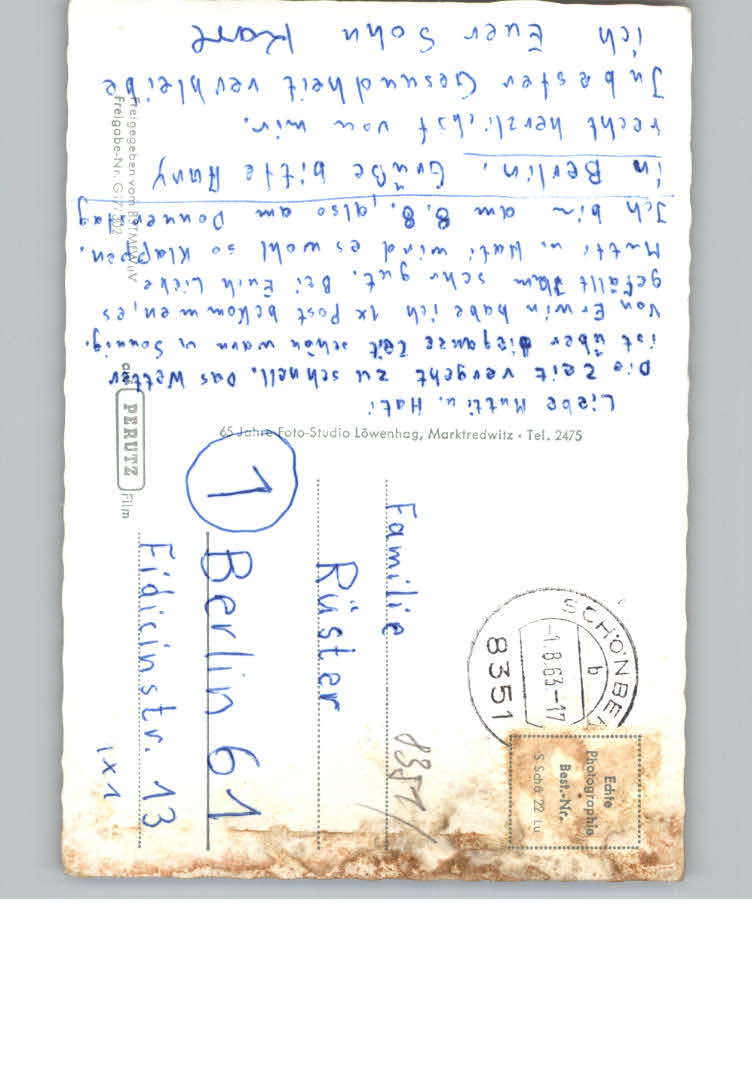 Liebe Mutti u. Hati
Die Zeit vergeht zu schnell. Das Wetter
ist über die ganze Zeit schön warm u. sonnig.
Von Erwin habe ich 1x Post bekommen, es
gefällt Ihm sehr gut. Bei Euch Liebe
Mutti u. Hati wird es wohl so klappen.
Ich bin am 8.8., also am Donnerstag
in Berlin. Grüße bitte Anny
recht herzlichst von mir.
In bester Gesundheit verbleibe
ich Euer Sohn
65 Jahre Foto-Studio Löwenhag, Marktredwitz · Tel. 2475
auf PERUTZ Film
Freigegeben vom
Freigabe-Nr.
SCHÖNBE
b
-1.8.63.-17
8351
Echte
Photographie
Best.-Nr.
S Schö 22 Lu
Familie
Rüster
1 Berlin 61
Fidicinstr. 13
1x1